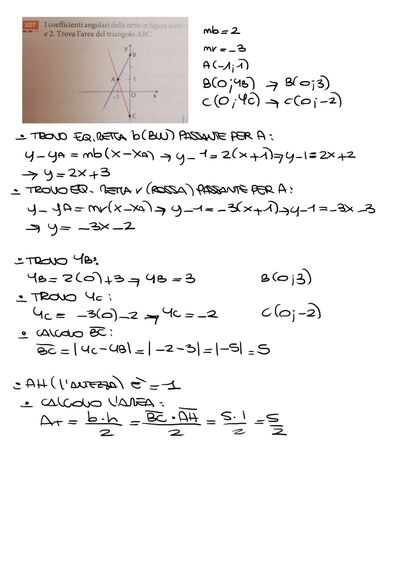 337 I coefficienti angolari delle rette in figura sono
e 2. Trova l'area del triangolo ABC.
y
B
A
1
-1
O
x
C
mb = 2
mr = -3
A(-1;1)
B(0;yB) → B(0;3)
C(0;yC) → C(0;-2)
• TROVO EQ. RETTA b (BLU) PASSANTE PER A:
y-yA = mb(x-xA) → y-1 = 2(x+1) → y-1 = 2x+2
→ y = 2x+3
• TROVO EQ. RETTA r (ROSSA) PASSANTE PER A:
y-yA = mr(x-xA) → y-1 = -3(x+1) → y-1 = -3x-3
→ y = -3x-2
• TROVO yB:
yB = 2(0)+3 → yB = 3 B(0;3)
• TROVO yC:
yC = -3(0)-2 → yC = -2 C(0;-2)
• CALCOLO BC:
BC = |yC-yB| = |-2-3| = |-5| = 5
• AH (L'ALTEZZA) È = 1
• CALCOLO L'AREA:
AT = b·h/2 = BC·AH/2 = 5·1/2 = 5/2